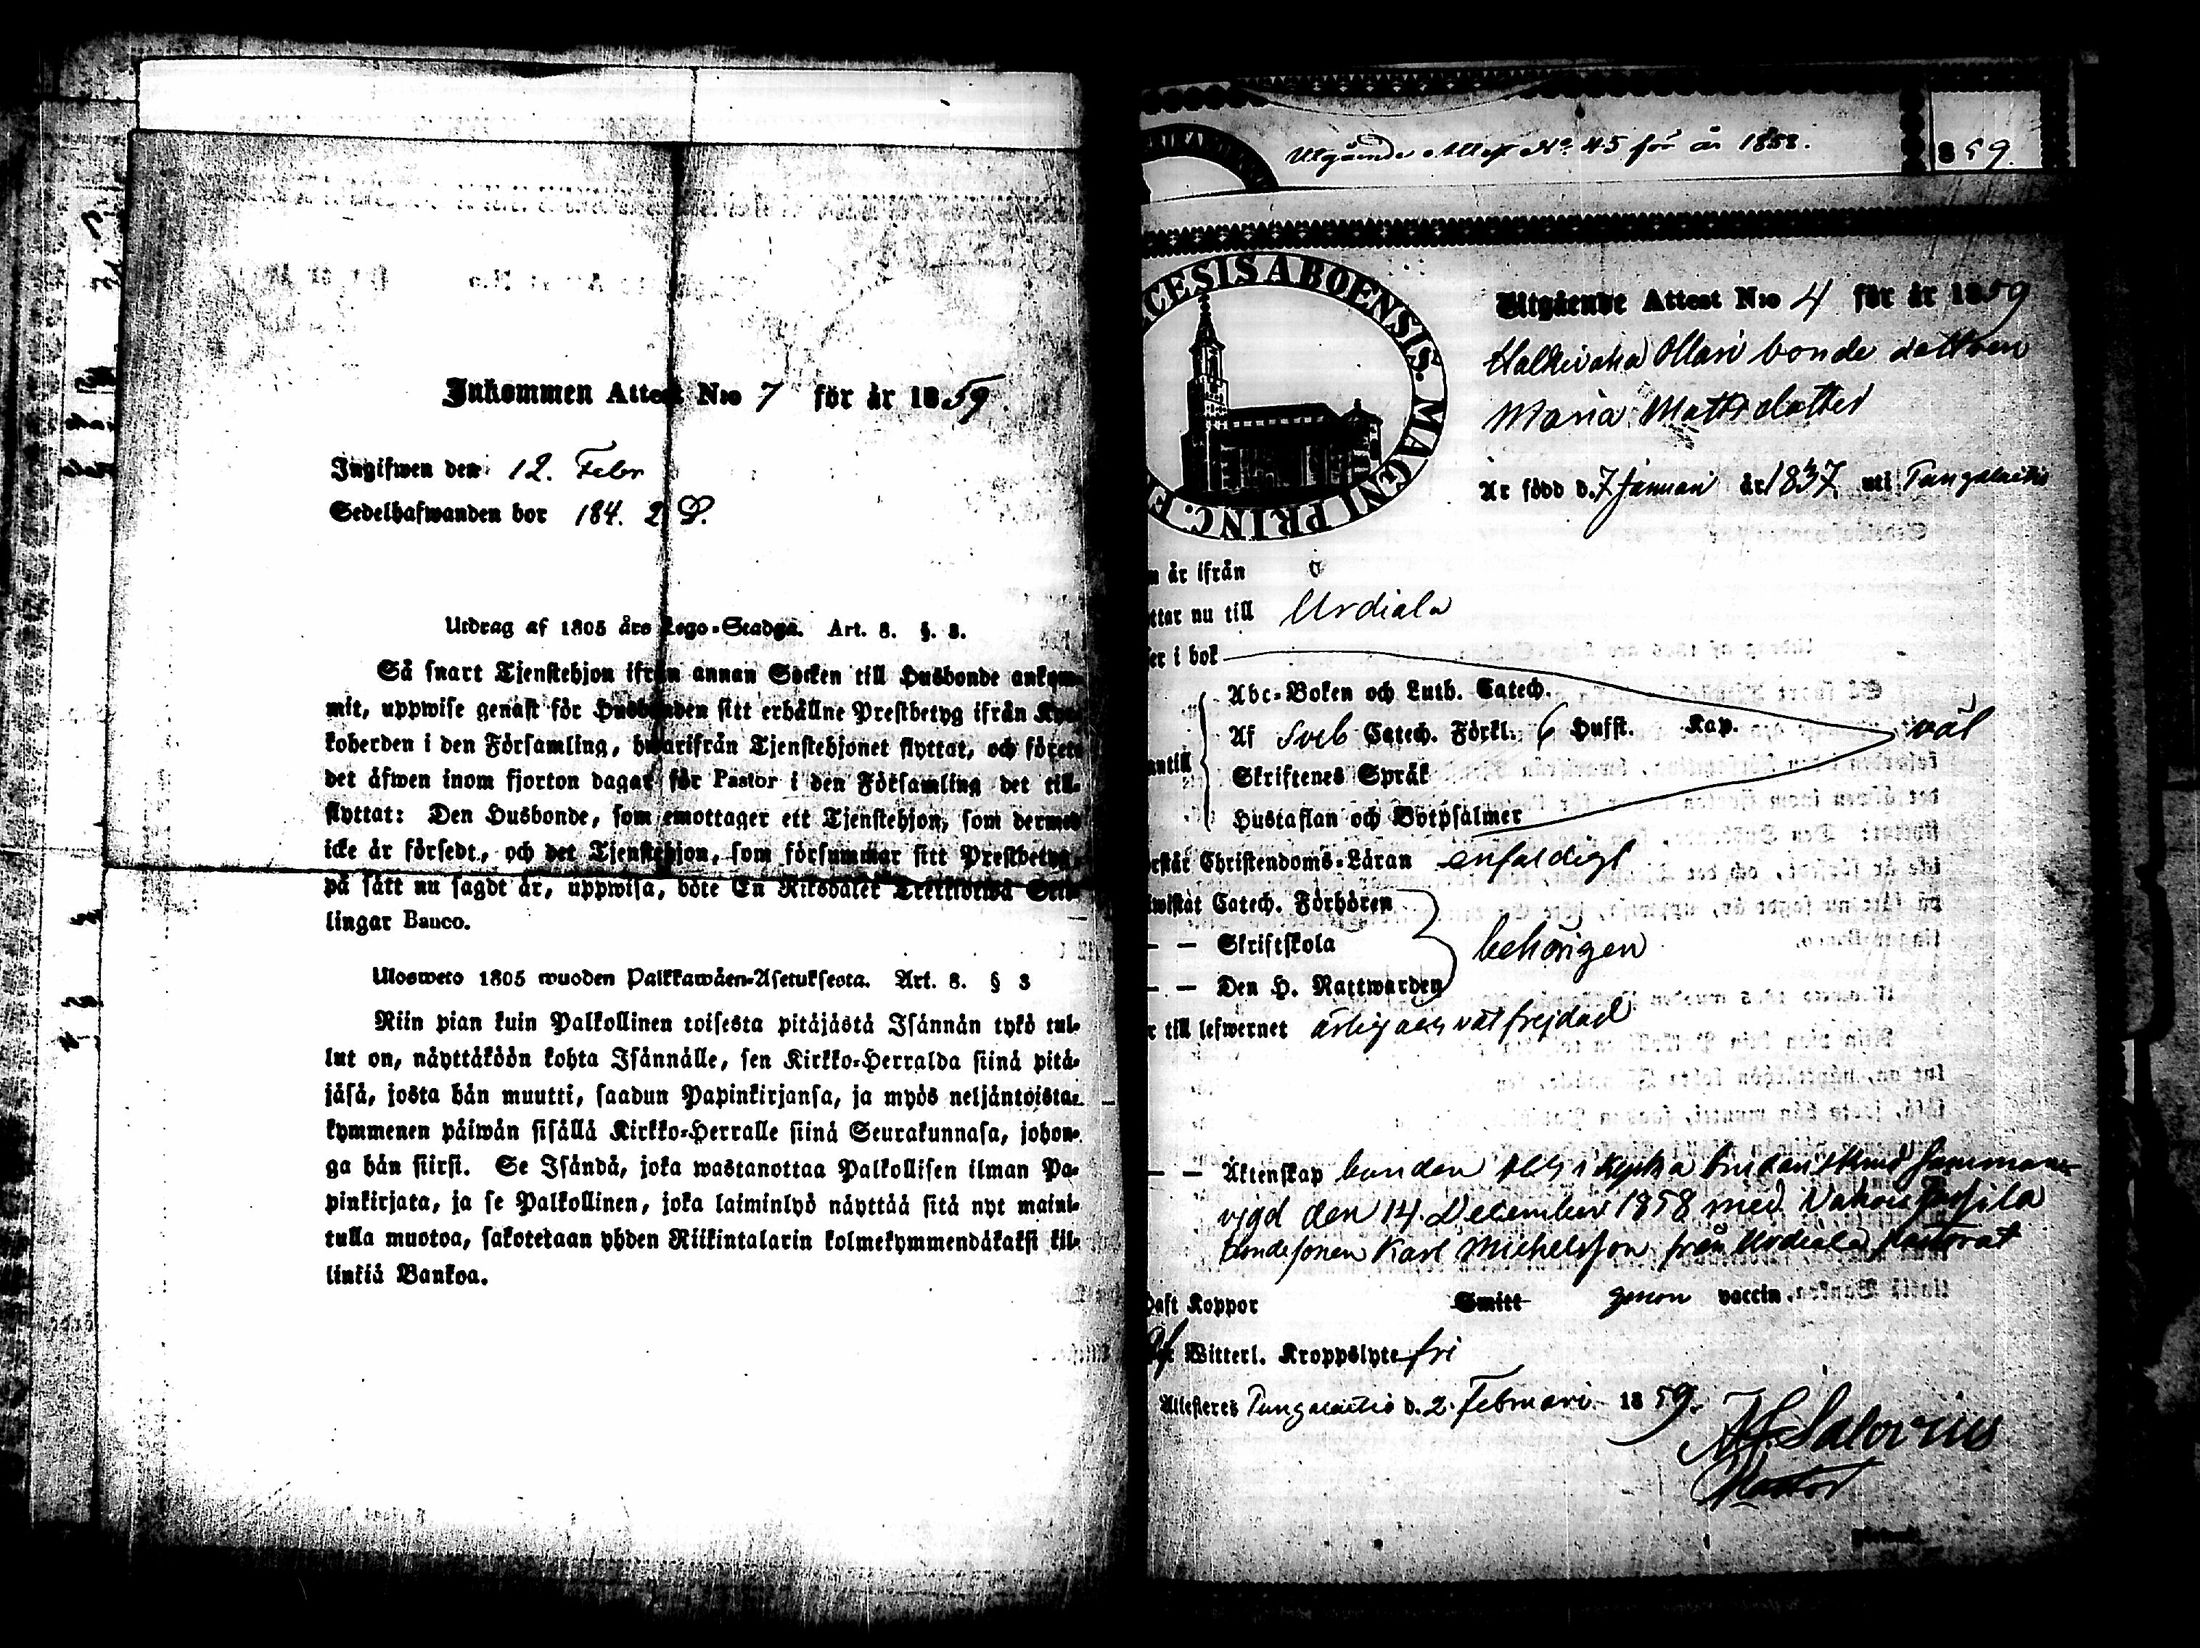 Inkommen Attest N:o 7 för år 1859
Ingifwen den 12. Febr
Sedelhafwanden bor 184. 2 D.
Utdrag af 1805 års Lego-Stadga. Art. 8. §. 3.
Så snart Tjenstehjon ifrån annan Socken till Husbonde ankom-
mit, uppwise genast för Husbonden sitt erhållne Prestbetyg ifrån Kyr-
koherden i den Församling, hwarifrån Tjenstehjonet flyttat, och förete
det äfwen inom fjorton dagar för Pastor i den Församling det till-
flyttat: Den Husbonde, som emottager ett Tjenstehjon, som dermed
icke är försedt, och det Tjenstehjon, som försummar sitt Prestbetyg,
på sätt nu sagdt är, uppwisa, böte En Riksdaler Trettiotwå Skil-
lingar Banco.
Ulosweto 1805 wuoden Palkkawäen-Asetuksesta. Art. 8. § 3
Niin pian kuin Palkollinen toisesta pitäjästä Isännän tykö tul-
lut on, näyttäköön kohta Isännälle, sen Kirkko-Herralda siinä pitä-
jäsä, josta hän muutti, saadun Papinkirjansa, ja myös neljäntoista-
kymmenen päiwän sisällä Kirkko-Herralle siinä Seurakunnasa, johon-
ga hän siirsi. Se Isändä, joka wastanottaa Palkollisen ilman Pa-
pinkirjata, ja se Palkollinen, joka laiminlyö näyttää sitä nyt maini-
tulla muotoa, sakotetaan yhden Riikintalarin kolmekymmendäkaksi kil-
linkiä Bankoa.
Utgående Attest No. 45 för år 1858.
859.
CESIS ABOENSIS. MAGNI PRINC. F
Utgående Attest N:o 4 för år 1859
Ollari bonde dottren
Maria Mattsdotter
Är född d. 7 Januari år 1837 uti
n är ifrån
ttar nu till Urdiala
er i bok
Abc-Boken och Luth. Catech.
Af Sveb Catech. Förkl. 6 Hufst. Kap. väl
antill Skriftenes Språk
Hustaflan och Botpsalmer
rstår Christendoms-Läran enfaldigt
iwistat Catech. Förhören
— — Skriftskola behörigen
— — Den H. Nattwarden
r till lefwernet ärlig och väl frejdad
— — Äktenskap bonden
vigd den 14 December 1858 med
bondesonen Karl Michelsson från Urdiala Pastorat
haft Koppor Smitt genom vaccin.
Witterl. Kroppslyte fri
Attesteres d. 2. Februari 1859.
Salovius
Pastor